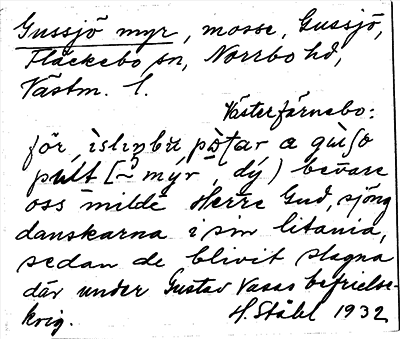 Gussjö myr, mosse, Gussjö,
Fläckebo sn, Norrbo hd,
Västm. l.
Västerfärnebo:
för
pult [~ myr, dý) bevare
oss milde Herre Gud, sjöng
danskarna i sin litania,
sedan de blivit slagna
där under Gustav Vasas befrielse-
krig. H. Ståhl 1932